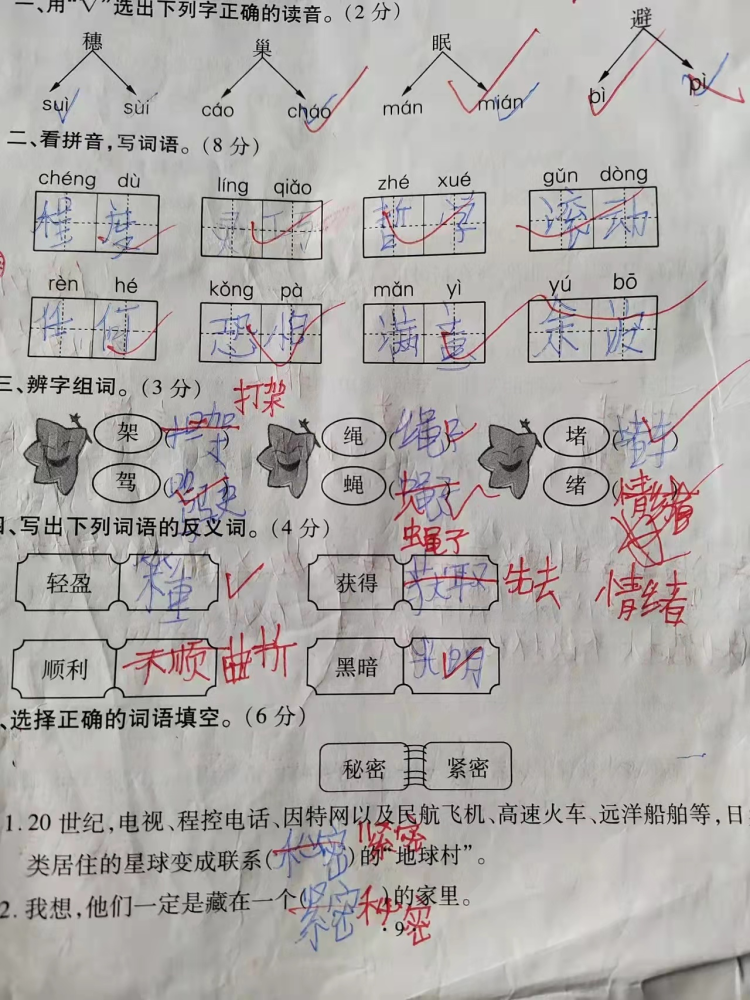 一、用“√”选出下列字正确的读音。(2分)
穗 巢 眠 避
suì sùi cáo cháo mán mián bì pì
二、看拼音,写词语。(8分)
chéng dù líng qiǎo zhé xué gǔn dòng
程度 灵巧 哲学 滚动
rèn hé kǒng pà mǎn yì yú bō
任何 恐怕 满意 余波
三、辨字组词。(3分) 打架
架 绳 绳子 堵 堵车
驾 蝇 蝇子 绪 情绪
蝇子
四、写出下列词语的反义词。(4分)
轻盈 笨重 获得 获取 失去 情绪
顺利 不顺 曲折 黑暗 光明
、选择正确的词语填空。(6分)
秘密 紧密
1. 20世纪,电视、程控电话、因特网以及民航飞机、高速火车、远洋船舶等,日
类居住的星球变成联系(秘密)的“地球村”。 紧密
2. 我想,他们一定是藏在一个(紧密)的家里。 秘密
·9·